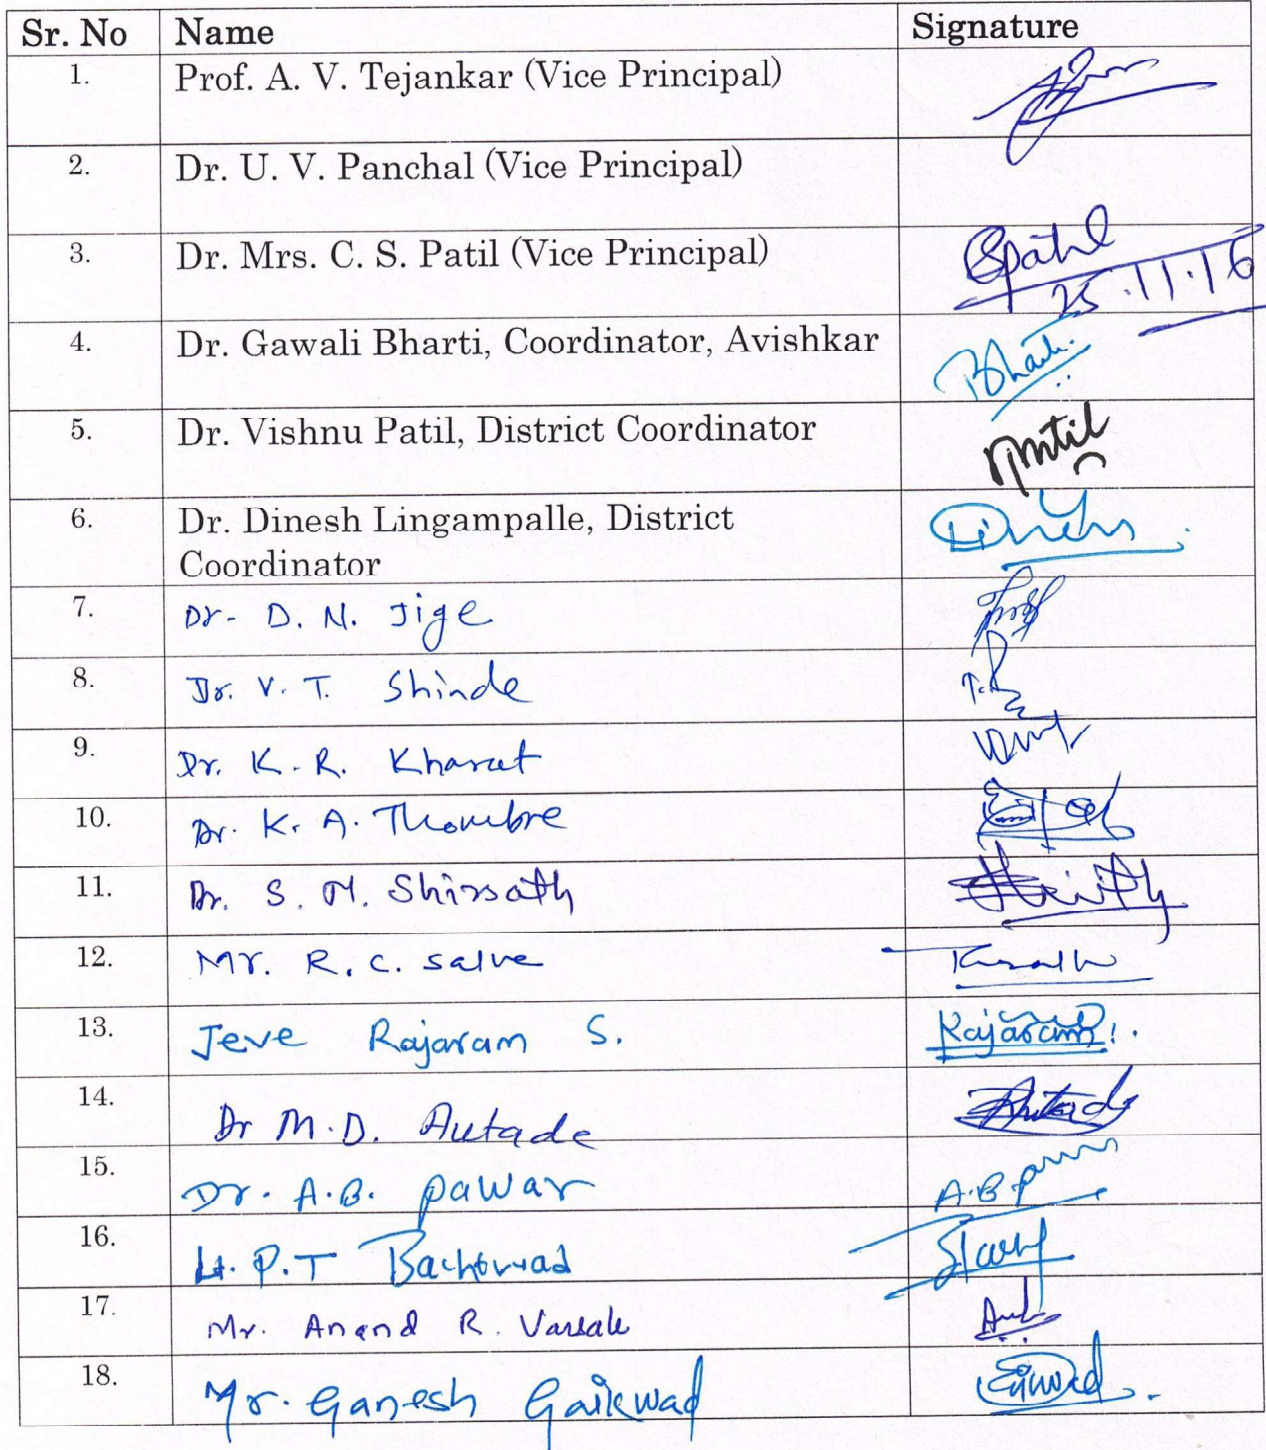 Sr. No Name Signature
1. Prof. A. V. Tejankar (Vice Principal)
2. Dr. U. V. Panchal (Vice Principal)
3. Dr. Mrs. C. S. Patil (Vice Principal) CSPatil
25.11.16
4. Dr. Gawali Bharti, Coordinator, Avishkar Bharti
5. Dr. Vishnu Patil, District Coordinator
6. Dr. Dinesh Lingampalle, District
Coordinator
7. Dr. D. N. Jige
8. Dr. V. T. Shinde
9. Dr. K. R. Kharat
10. Dr. K. A. Thombre
11. Dr. S. M. Shirsath
12. Mr. R. C. Salve
13. Jeve Rajaram S. Rajaram
14. Dr M.D. Autade
15. Dr. A.B. Pawar A.B
16. P.T
17. Mr. Anand R.
18. Mr. Ganesh Gaikwad